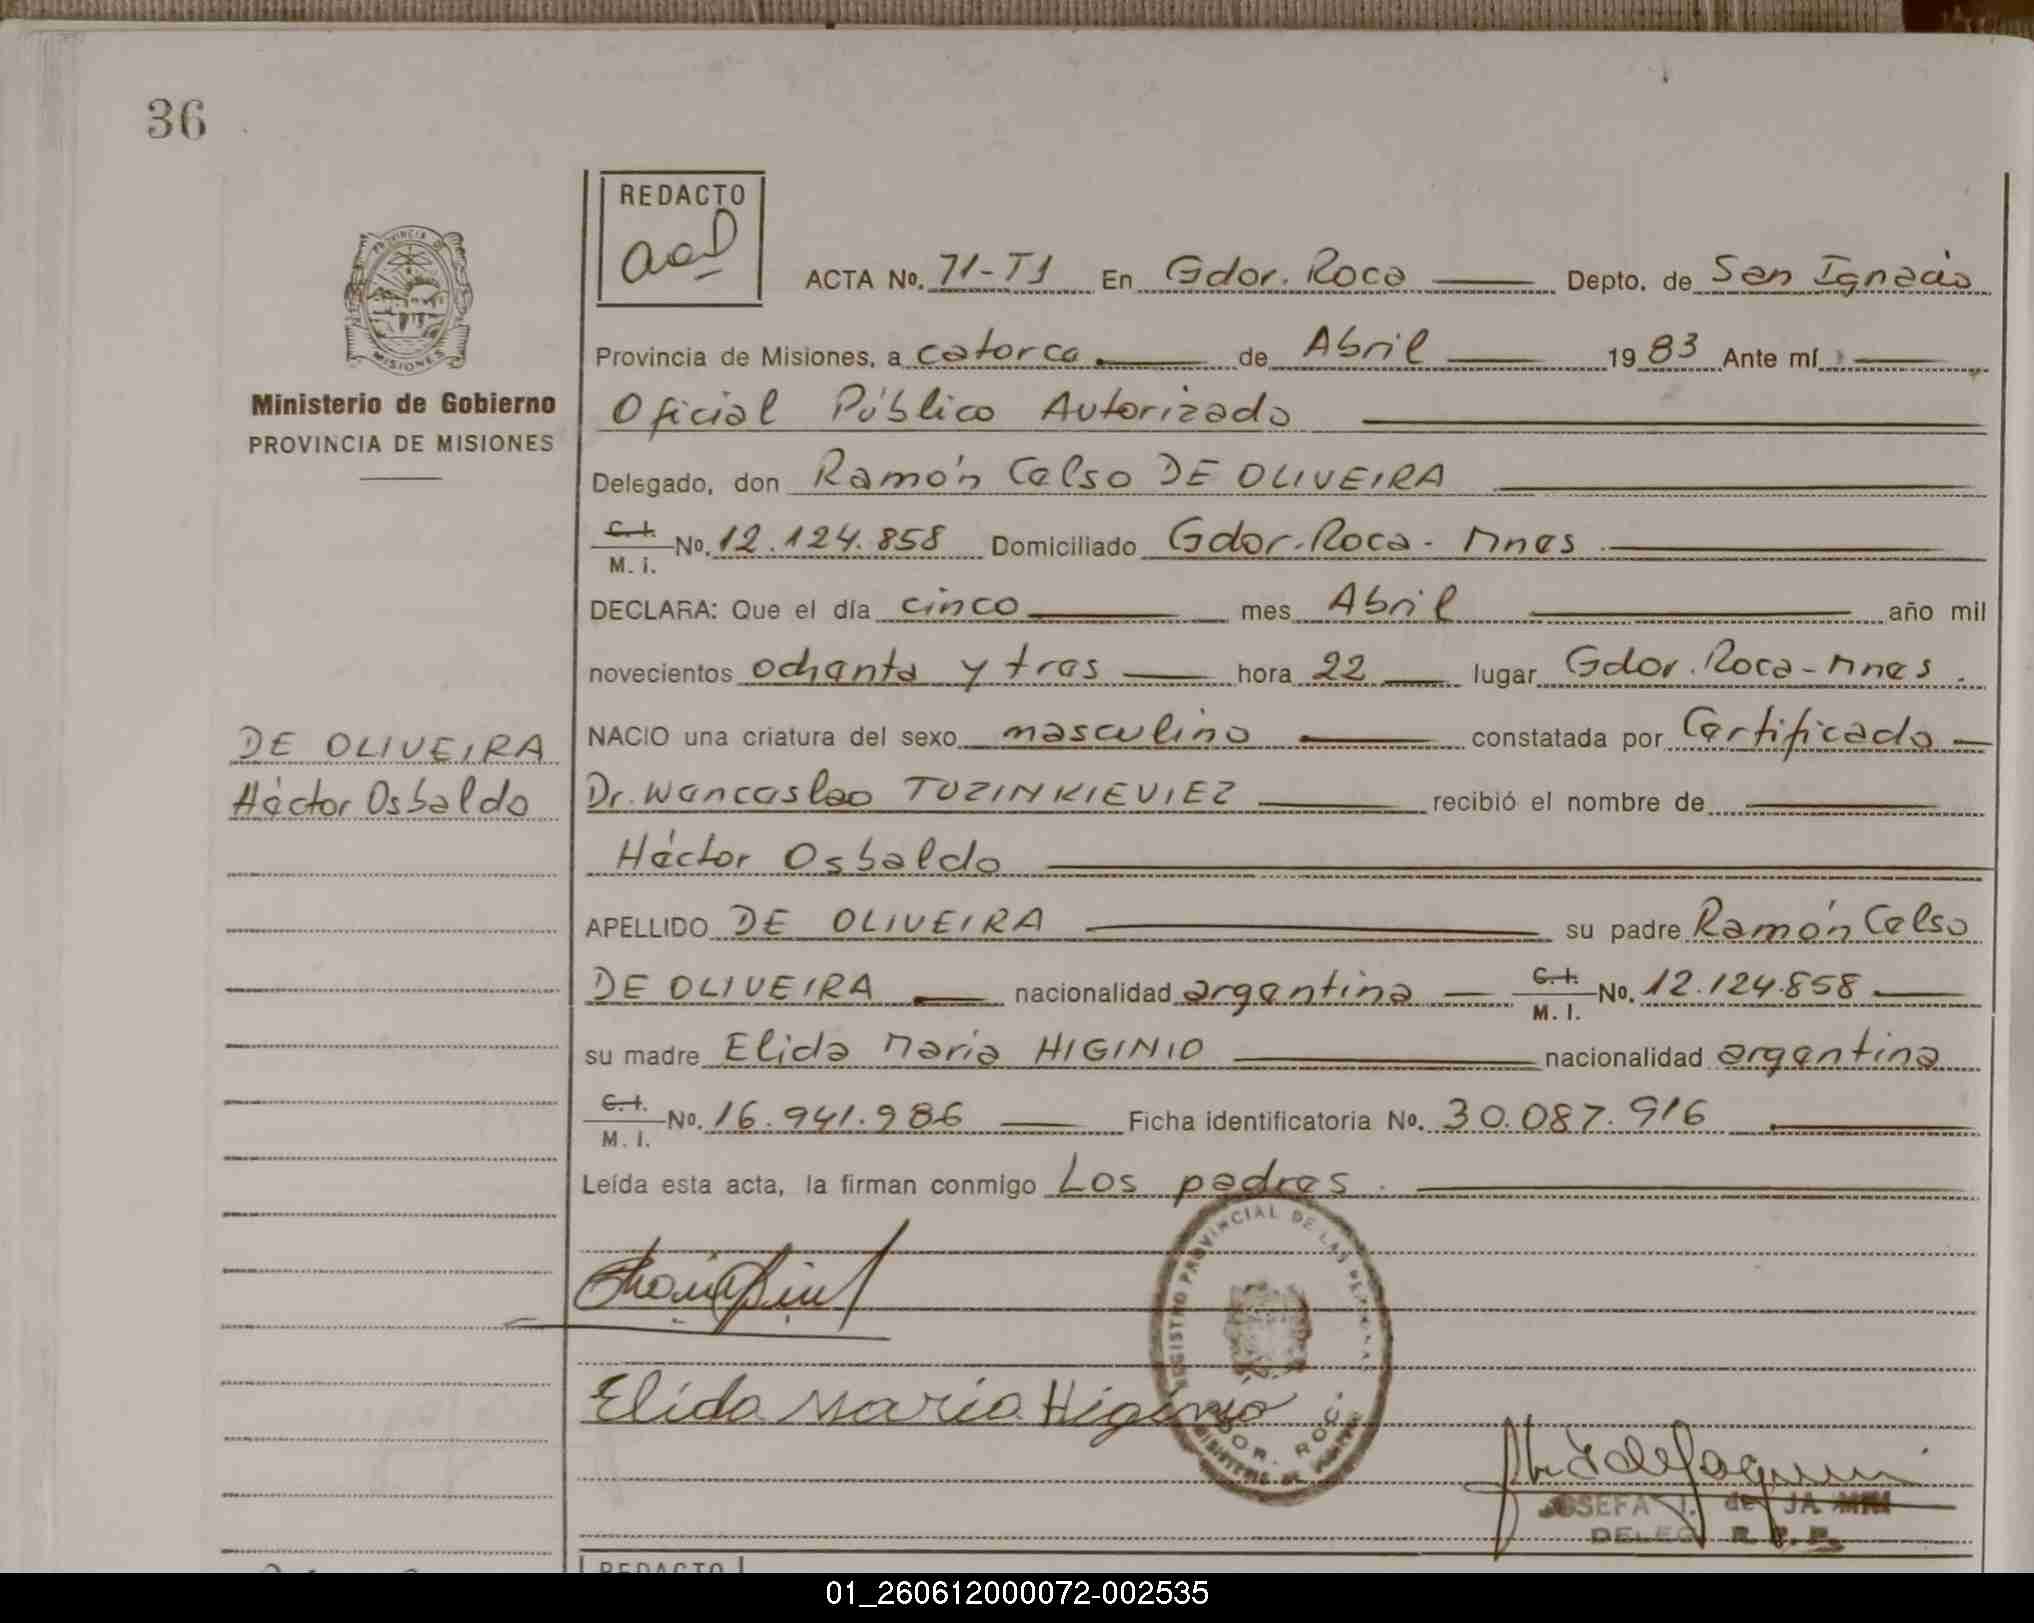 36
REDACTO
ACTA No. 71-T1 En Gdor. Roca Depto. de San Ignacio
PROVINCIA DE MISIONES
Provincia de Misiones, a catorce de Abril 1983 Ante mí
Ministerio de Gobierno
PROVINCIA DE MISIONES
Oficial Público Autorizado
Delegado, don Ramón Celso DE OLIVEIRA
C.I. M.I. No. 12.124.858 Domiciliado Gdor. Roca - Mnes
DECLARA: Que el día cinco mes Abril año mil
novecientos ochenta y tres hora 22 lugar Gdor. Roca - Mnes.
DE OLIVEIRA
Héctor Osbaldo
NACIO una criatura del sexo masculino constatada por Certificado
Dr. Wenceslao TUZINKIEVIEZ recibió el nombre de
Héctor Osbaldo
APELLIDO DE OLIVEIRA su padre Ramón Celso
DE OLIVEIRA nacionalidad argentina C.I. M.I. No. 12.124.858
su madre Elida Maria HIGINIO nacionalidad argentina
C.I. M.I. No. 16.941.986 Ficha identificatoria No. 30.087.916
Leída esta acta, la firman conmigo Los padres.
REGISTRO PROVINCIAL DE LAS PERSONAS
GDOR. ROCA
Elida Maria Higinio
JOSEFA de
DELEG. R. P. P.
REDACTO
01_260612000072-002535